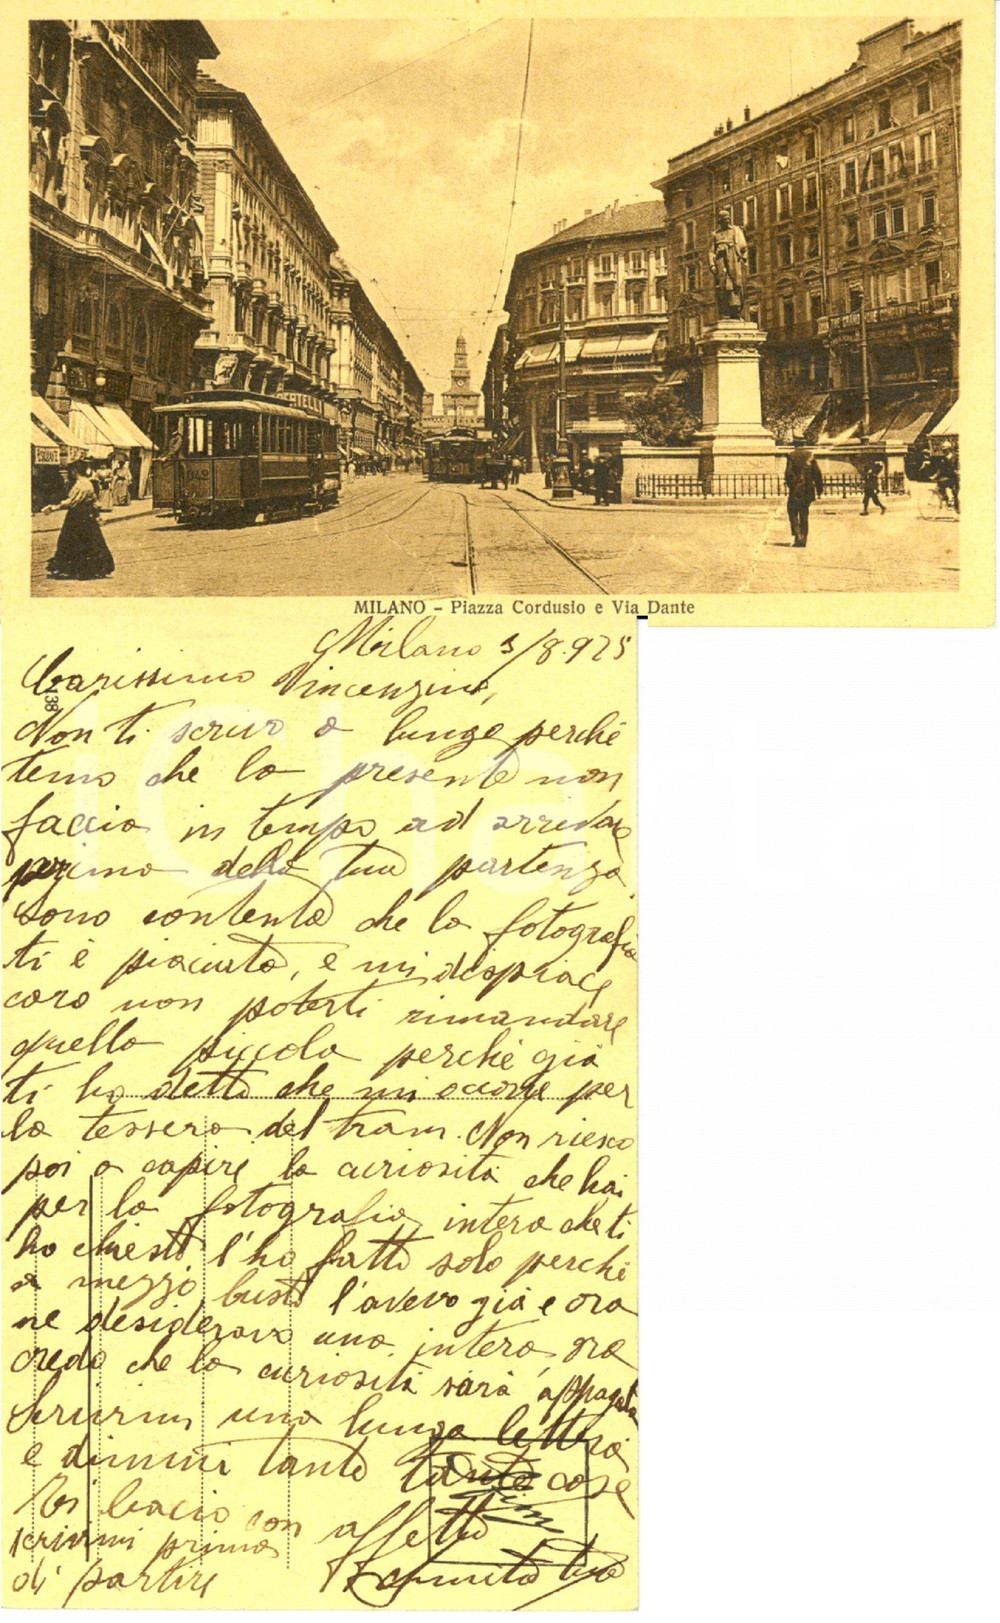 FRATELLI
942
MILANO - Piazza Cordusio e Via Dante
738
Milano 3/8.925
Carissimo Vincenzino,
Non ti scrivo a lungo perché
temo che la presente non
faccia in tempo ad arrivare
prima della tua partenza.
Sono contenta che la fotografia
ti è piaciuta, e mi dispiace
caro non poterti rimandare
quella piccola perché già
ti ho detto che mi occorre per
la tessera del tram. Non riesco
poi a capire la curiosità che hai
per la fotografia intera che ti
ho chiesto l'ho fatto solo perché
a mezzo busto l'avevo già e ora
ne desideravo una intera ora
credo che la curiosità sarà appagata
Scrivimi una lunga lettera
e dimmi tante tante cose
Ti bacio con affetto
scrivimi prima
di partire